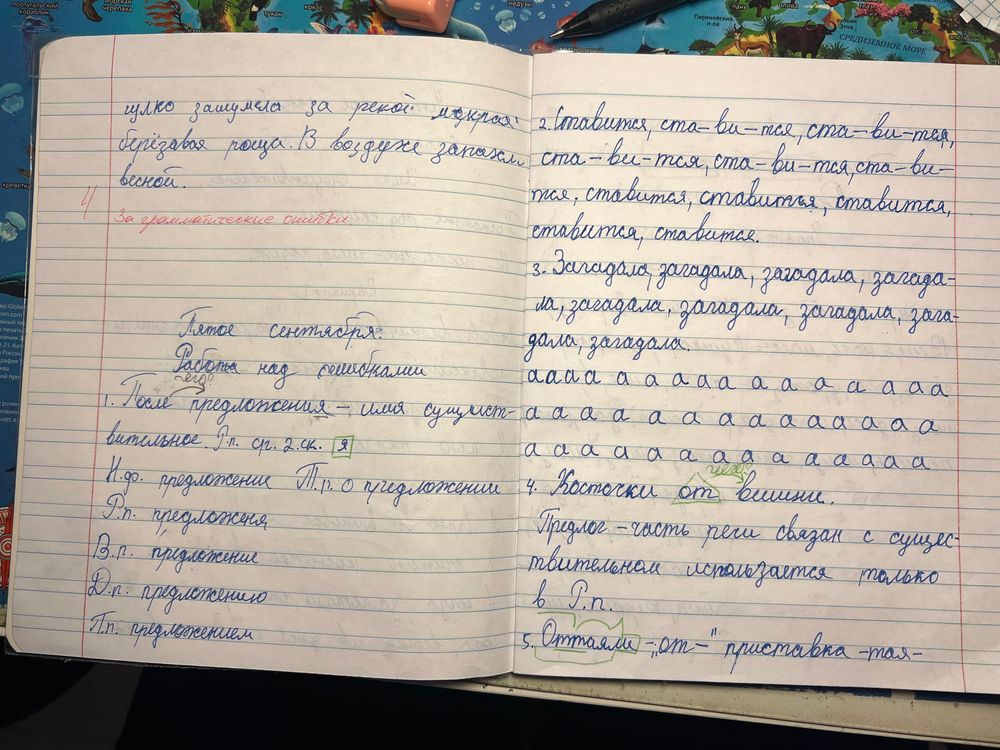 гулко зашумела за рекой мокрая
берёзавая роща. В воздухе запахло
весной.
4
За грамматические ошибки
Пятое сентября.
Работа над ошибками
чего?
1. После предложения – имя сущест-
вительное. Р.п. ср. 2. ск. я
Н.ф. предложение Т.п. о предложении
Р.п. предложеня
В.п. предложение
Д.п. предложению
П.п. предложением
2. Ставится, ста-ви-тся, ста-ви-тся,
ста-ви-тся, ста-ви-тся, ста-ви-
тся, ставится, ставиться, ставится,
ставится, ставится.
3. Загадала, загадала, загадала, загада-
ла, загадала, загадала, загадала, зага-
дала, загадала.
аааа а а аааа а а а а ааа
а а а а а а а а а а а а а а а
а а а а а а а а а а а а а а а
чего?
4. Косточки от вишни.
Предлог – часть речи связан с сущес-
твительном использается только
в Р.п.
5. Оттаяли – „от-" приставка -тая-
СРЕДИЗЕМНОЕ МОРЕ
Пиренейский
п-ов